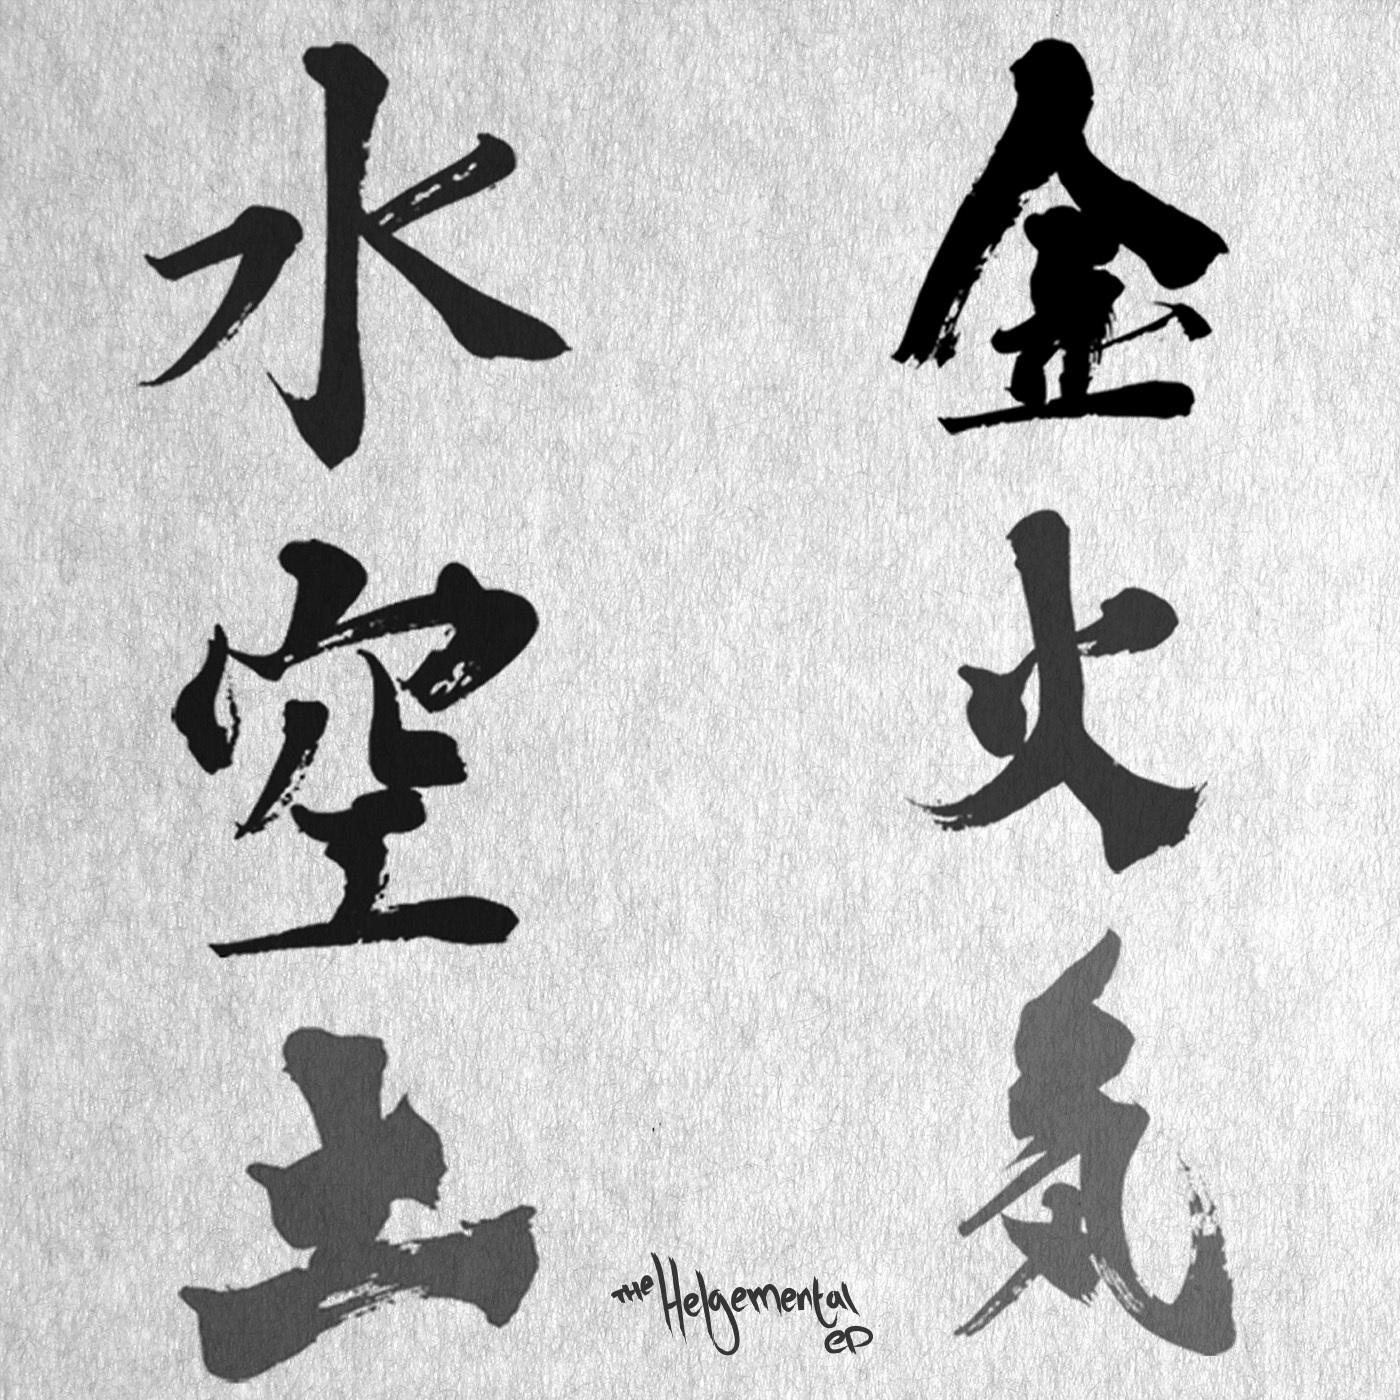 水
空
土
金
火
気
THE Helgemental
EP